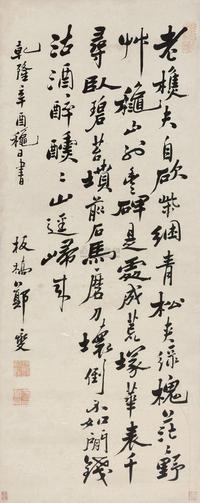 老樵夫自砍柴綑青松夾綠槐茫〻野
艸穐山外豐碑是處成荒塚華表千
尋臥碧苔墳前石馬磨刀壞倒不如閒錢
沽酒醉醺〻山逕歸來
乾隆辛酉穐日書
板橋鄭燮